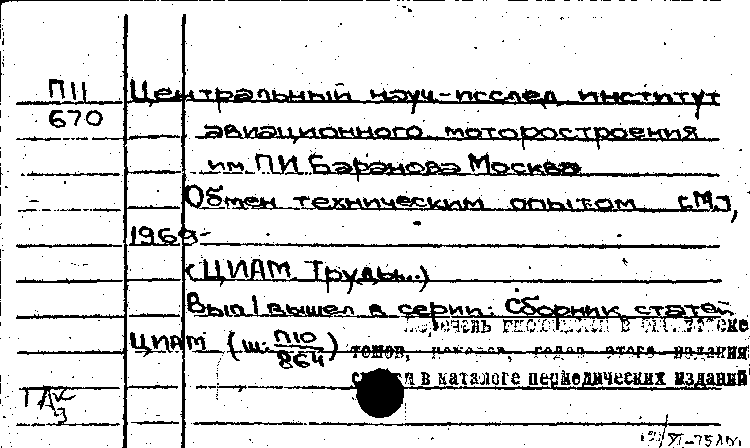 П11 Центральный науч-исслед институт
670 авиационного моторостроения
им ПИ Баранова Москва
Обмен техническим опытом [М.],
1969-
(ЦИАМ Труды...)
Вып 1 вышел в серии: Сборник статей
Перечень в
ЦИАМ (ш: П10/864) томов, номеров, годов этого издания
в каталоге периодических изданий
ГАК
3